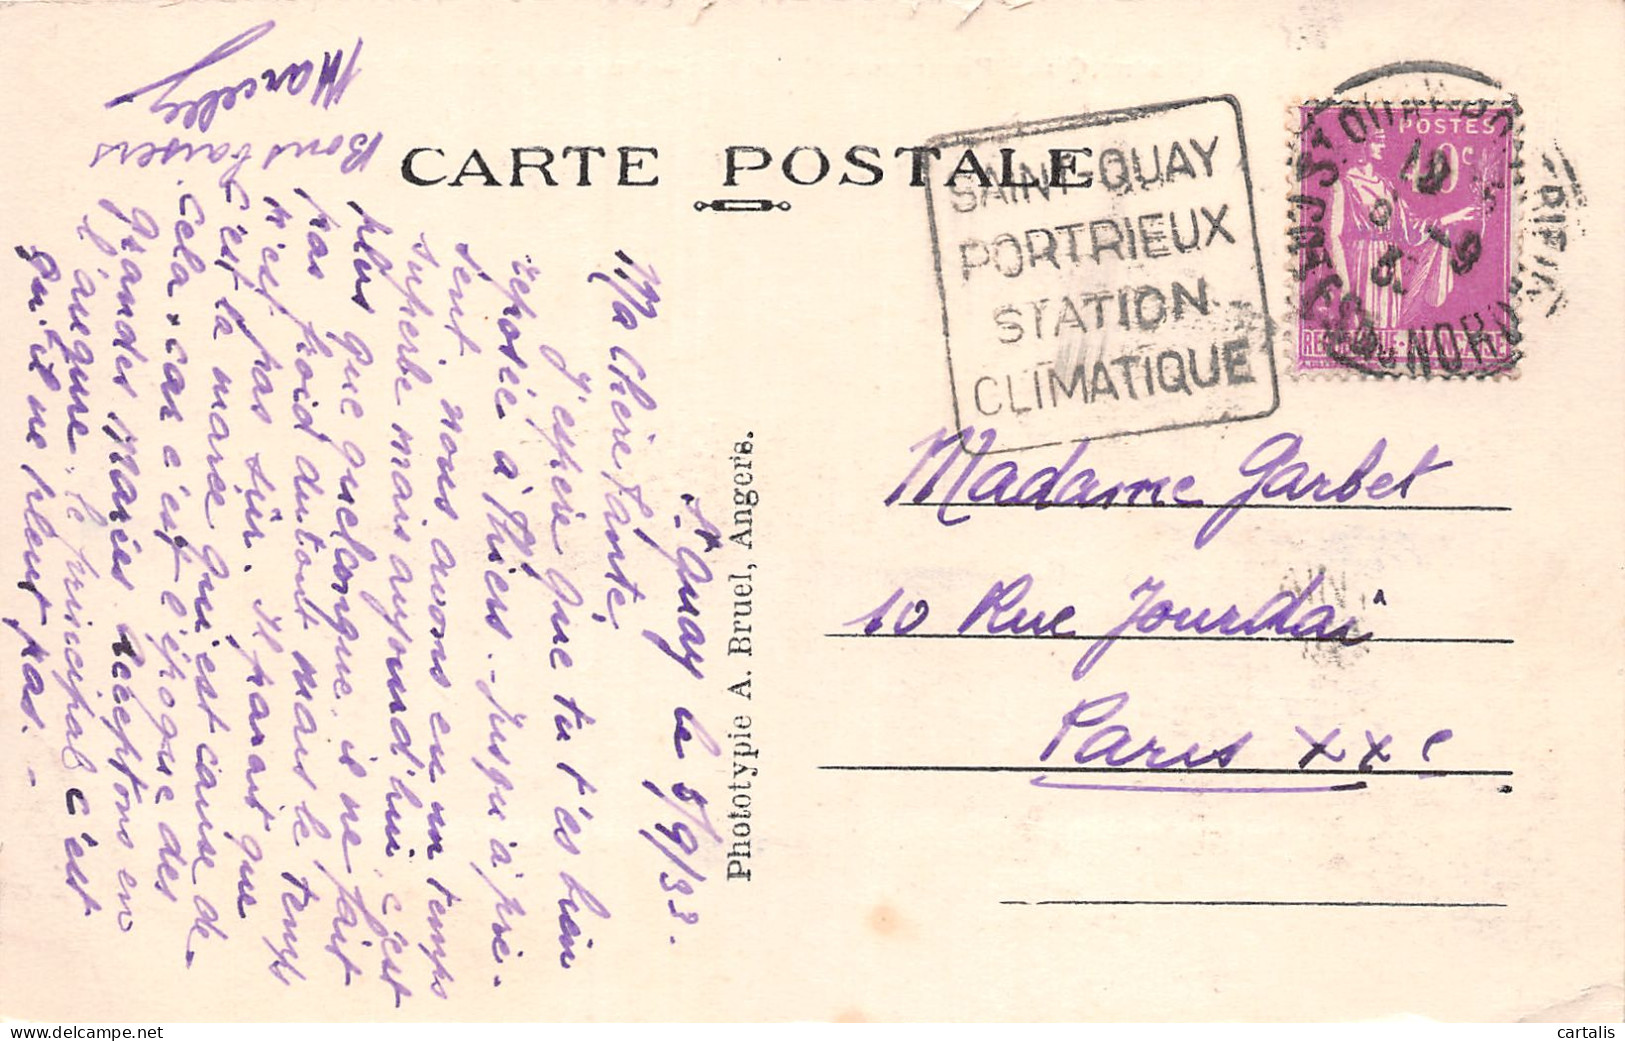 CARTE POSTALE
SAINT-QUAY
PORTRIEUX
STATION
CLIMATIQUE
POSTES
40c
REPUBLIQUE-FRANCAISE
St Quay le 8/9/33.
Ma Chère Tante,
J'espère que tu t'es bien
reposée à Thiers. Jusqu'à pré-
sent nous avons eu un temps
superbe mais aujourd'hui c'est
plus que quelconque. il ne fait
pas froid du tout mais le temps
n'est pas sûr. Il parait que
c'est la marée qui est cause de
cela. car c'est l'époque des
grandes Marées. Acceptons en
l'augure. le principal c'est
qu'il ne pleut pas.-
Bons baisers
Marcelle
Phototypie A. Bruel, Angers.
Madame Garbet
10 Rue Jourdain
Paris XXe
cartalis